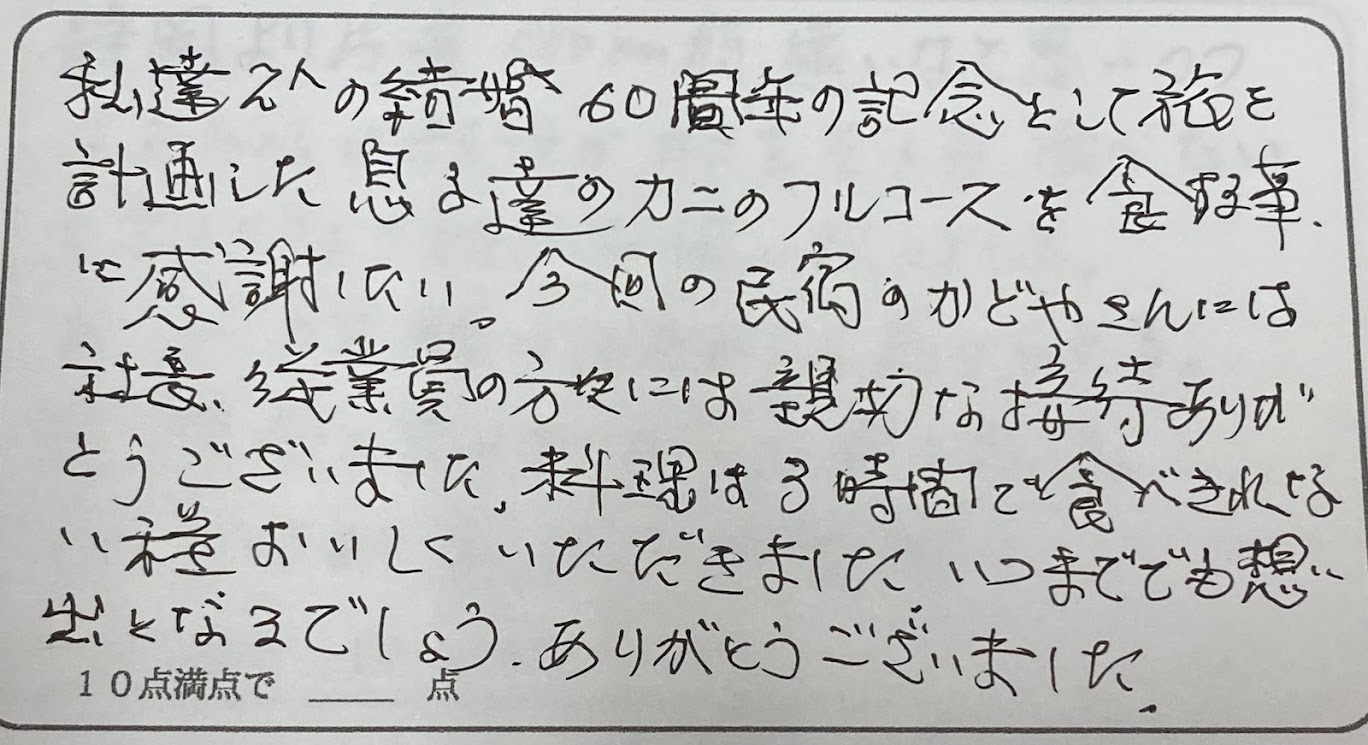 私達2人の結婚60周年の記念として旅を
計画した息子達のカニのフルコースを食する事、
に感謝したい。今回の民宿のかどやさんには
社長、従業員の方々には親切な接待ありが
とうございました。料理は3時間でも食べきれな
い程おいしくいたただきました いつまででも想い
出となるでしょう。ありがとうございました。
10点満点で ____ 点